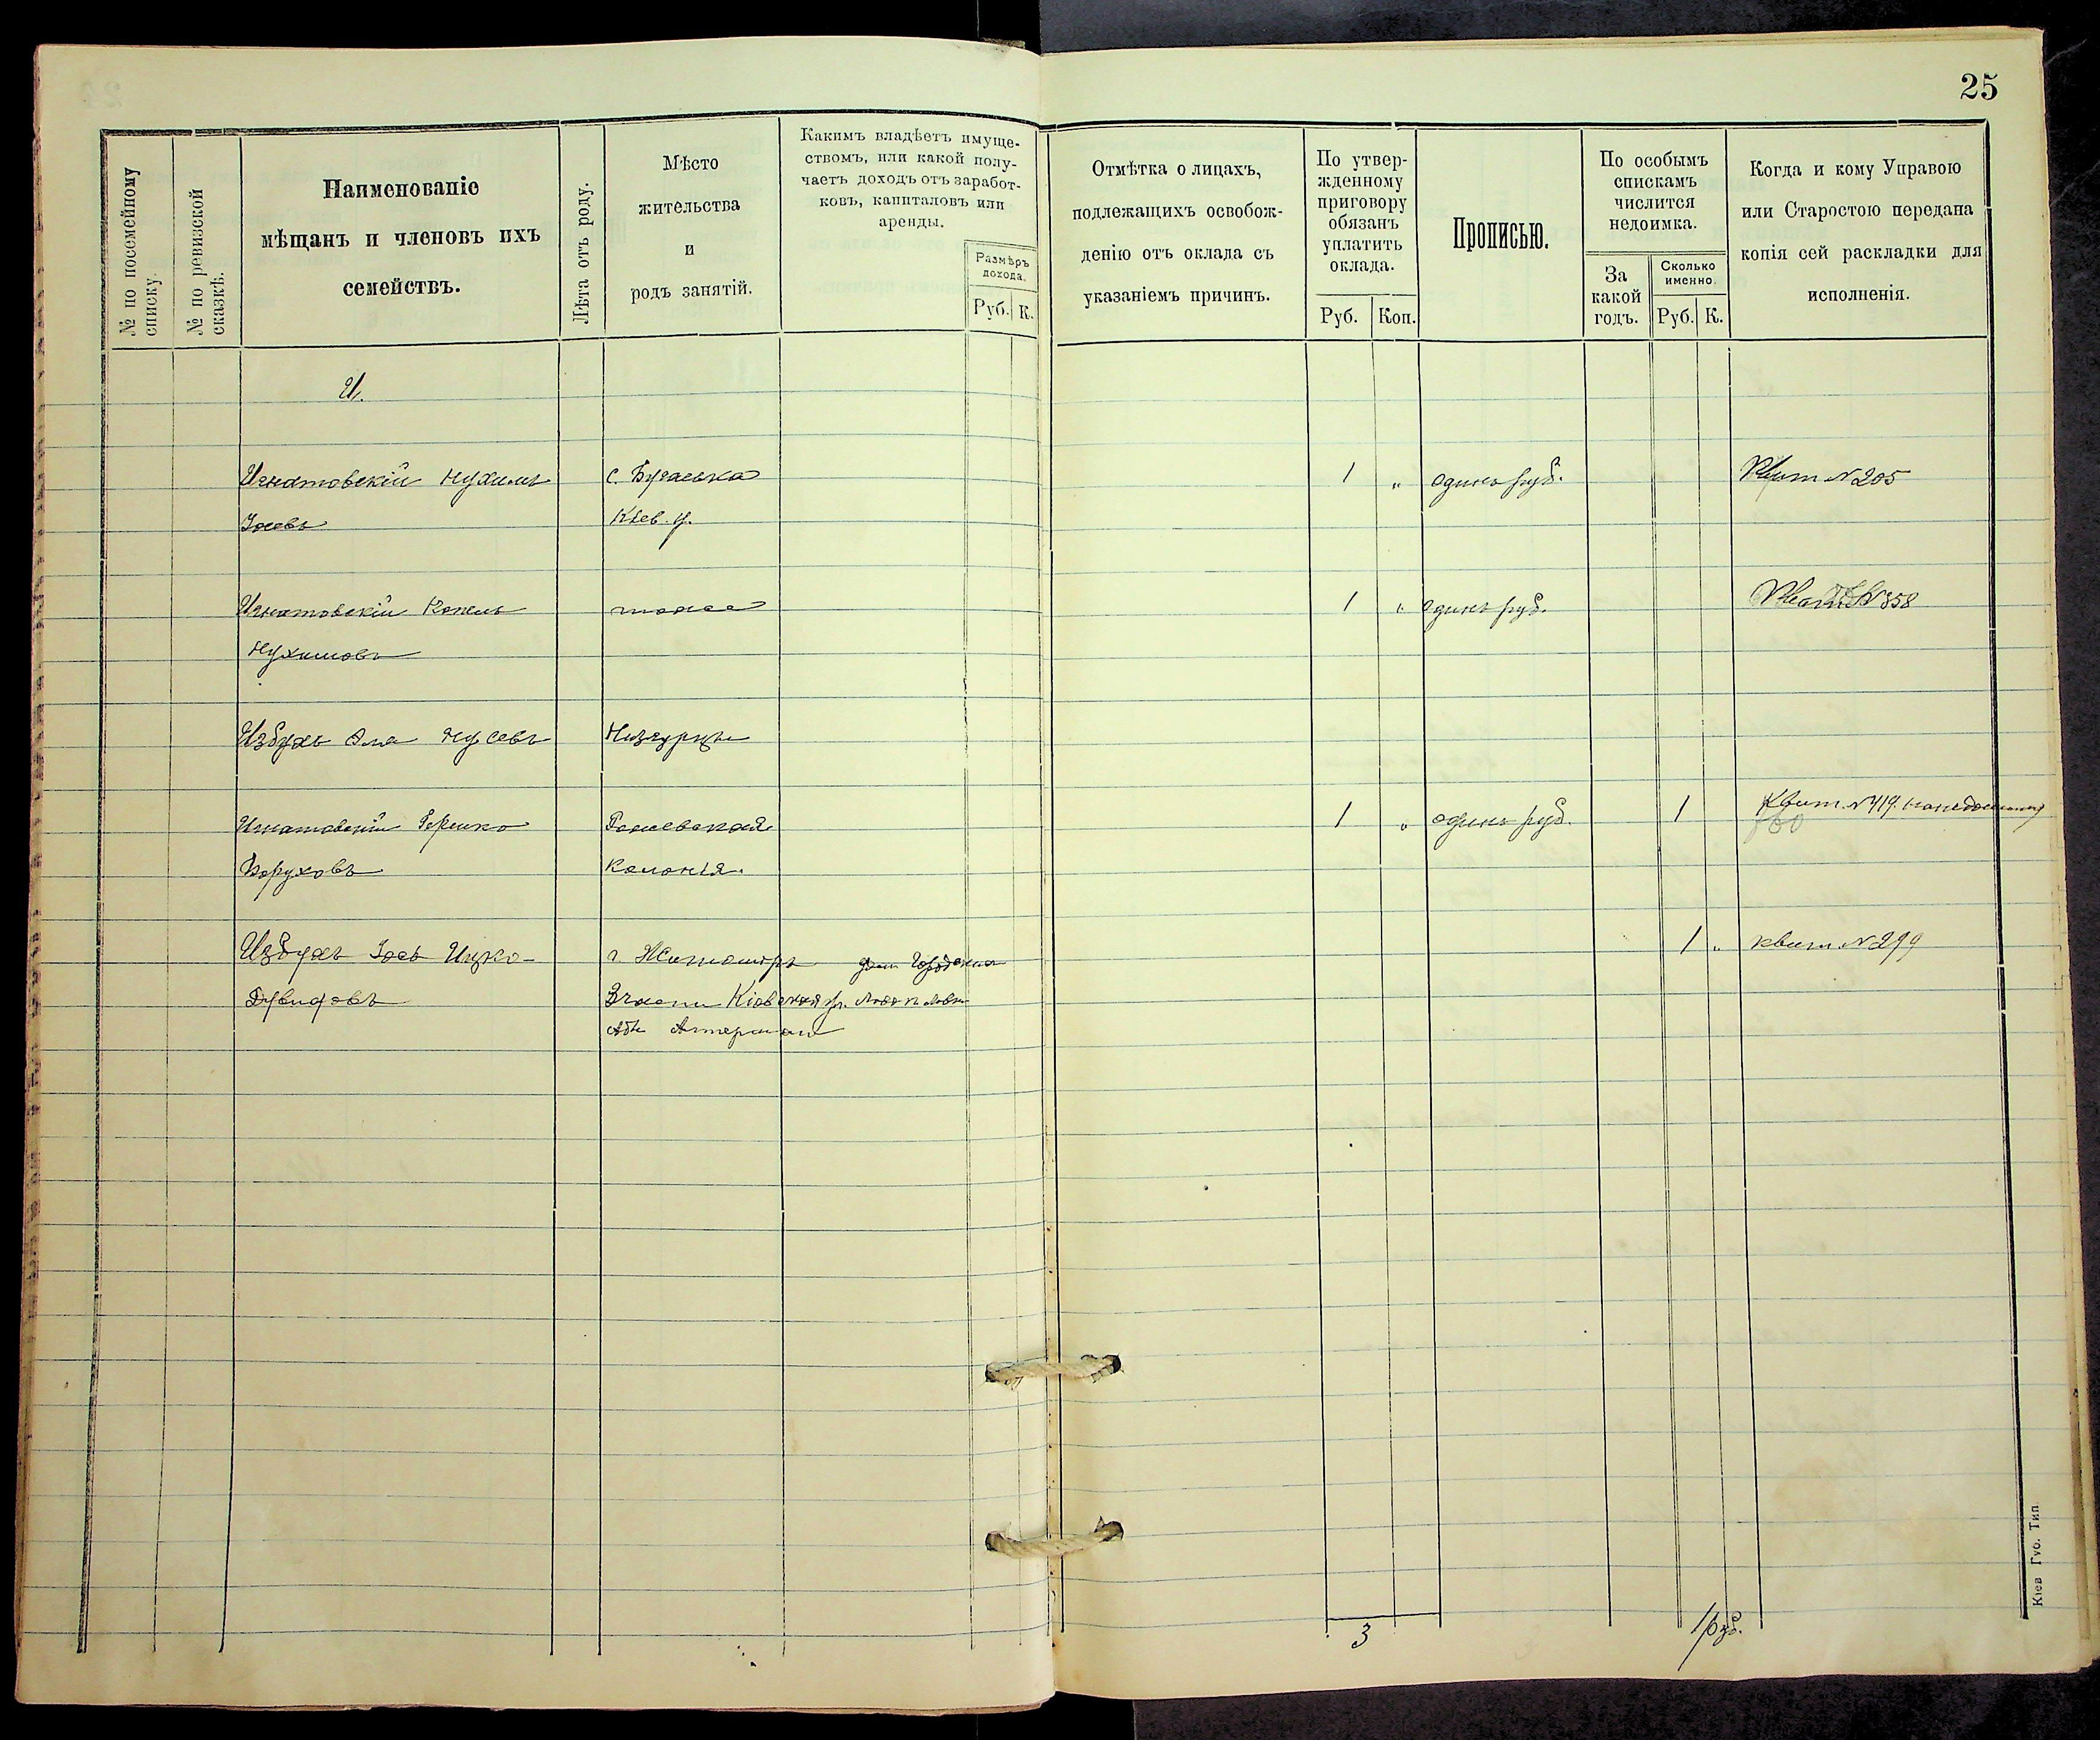 25
№ по посемейному списку.
№ по ревизской сказкѣ.
Наименованіе
мѣщанъ и членовъ ихъ
семействъ.
Лѣта отъ роду.
Мѣсто
жительства
и
родъ занятій.
Какимъ владѣетъ имуще-
ствомъ, или какой полу-
чаетъ доходъ отъ заработ-
ковъ, капиталовъ или
аренды.
Размѣръ
дохода.
Руб. К.
Отмѣтка о лицахъ,
подлежащихъ освобож-
денію отъ оклада съ
указаніемъ причинъ.
По утвер-
жденному
приговору
обязанъ
уплатить
оклада.
Руб. Коп.
Прописью.
По особымъ
спискамъ
числится
недоимка.
За
какой
годъ.
Сколько
именно.
Руб. К.
Когда и кому Управою
или Старостою передана
копія сей раскладки для
исполненія.
И.
Игнатовскій Нухимъ с. Бугаевка 1 „ одинъ руб. Квит № 205
Іосевъ Кіев. у.
Игнатовскій Копель тоже 1 „ одинъ руб. № 358
Нухимовъ
Избухъ
Игнатовскій 1 „ одинъ руб. 1 Квит. № 419.
Боруховъ колонія.
Избухъ Іось Ицко- г. Житомиръ 1 „ квит. № 299
Дувидовъ
3
1 руб.
Кіев Губ. Тип.